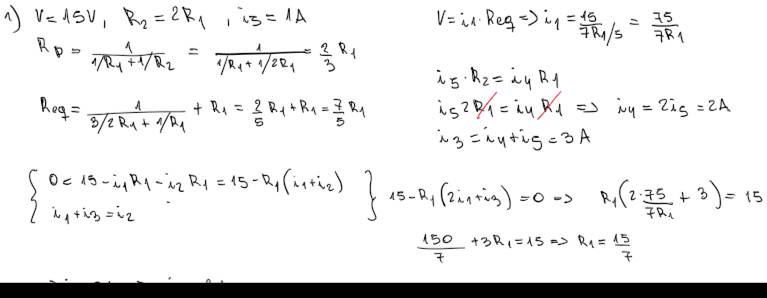 1) V=15V, R2=2R1, i5=1A
Rp = 1/(1/R1+1/R2) = 1/(1/R1+1/2R1) = 2/3 R1
Req = 1/(3/2R1+1/R1) + R1 = 2/5 R1+R1 = 7/5 R1
V=i1·Req => i1 = 15/(7R1/5) = 75/7R1
i5·R2=i4R1
i5 2R1=i4R1 => i4=2i5=2A
i3=i4+i5=3A
{ 0=15-i1R1-i2R1=15-R1(i1+i2)
i1+i3=i2 }
15-R1(2i1+i3)=0 => R1(2·75/7R1+3)=15
150/7 +3R1=15 => R1=15/7